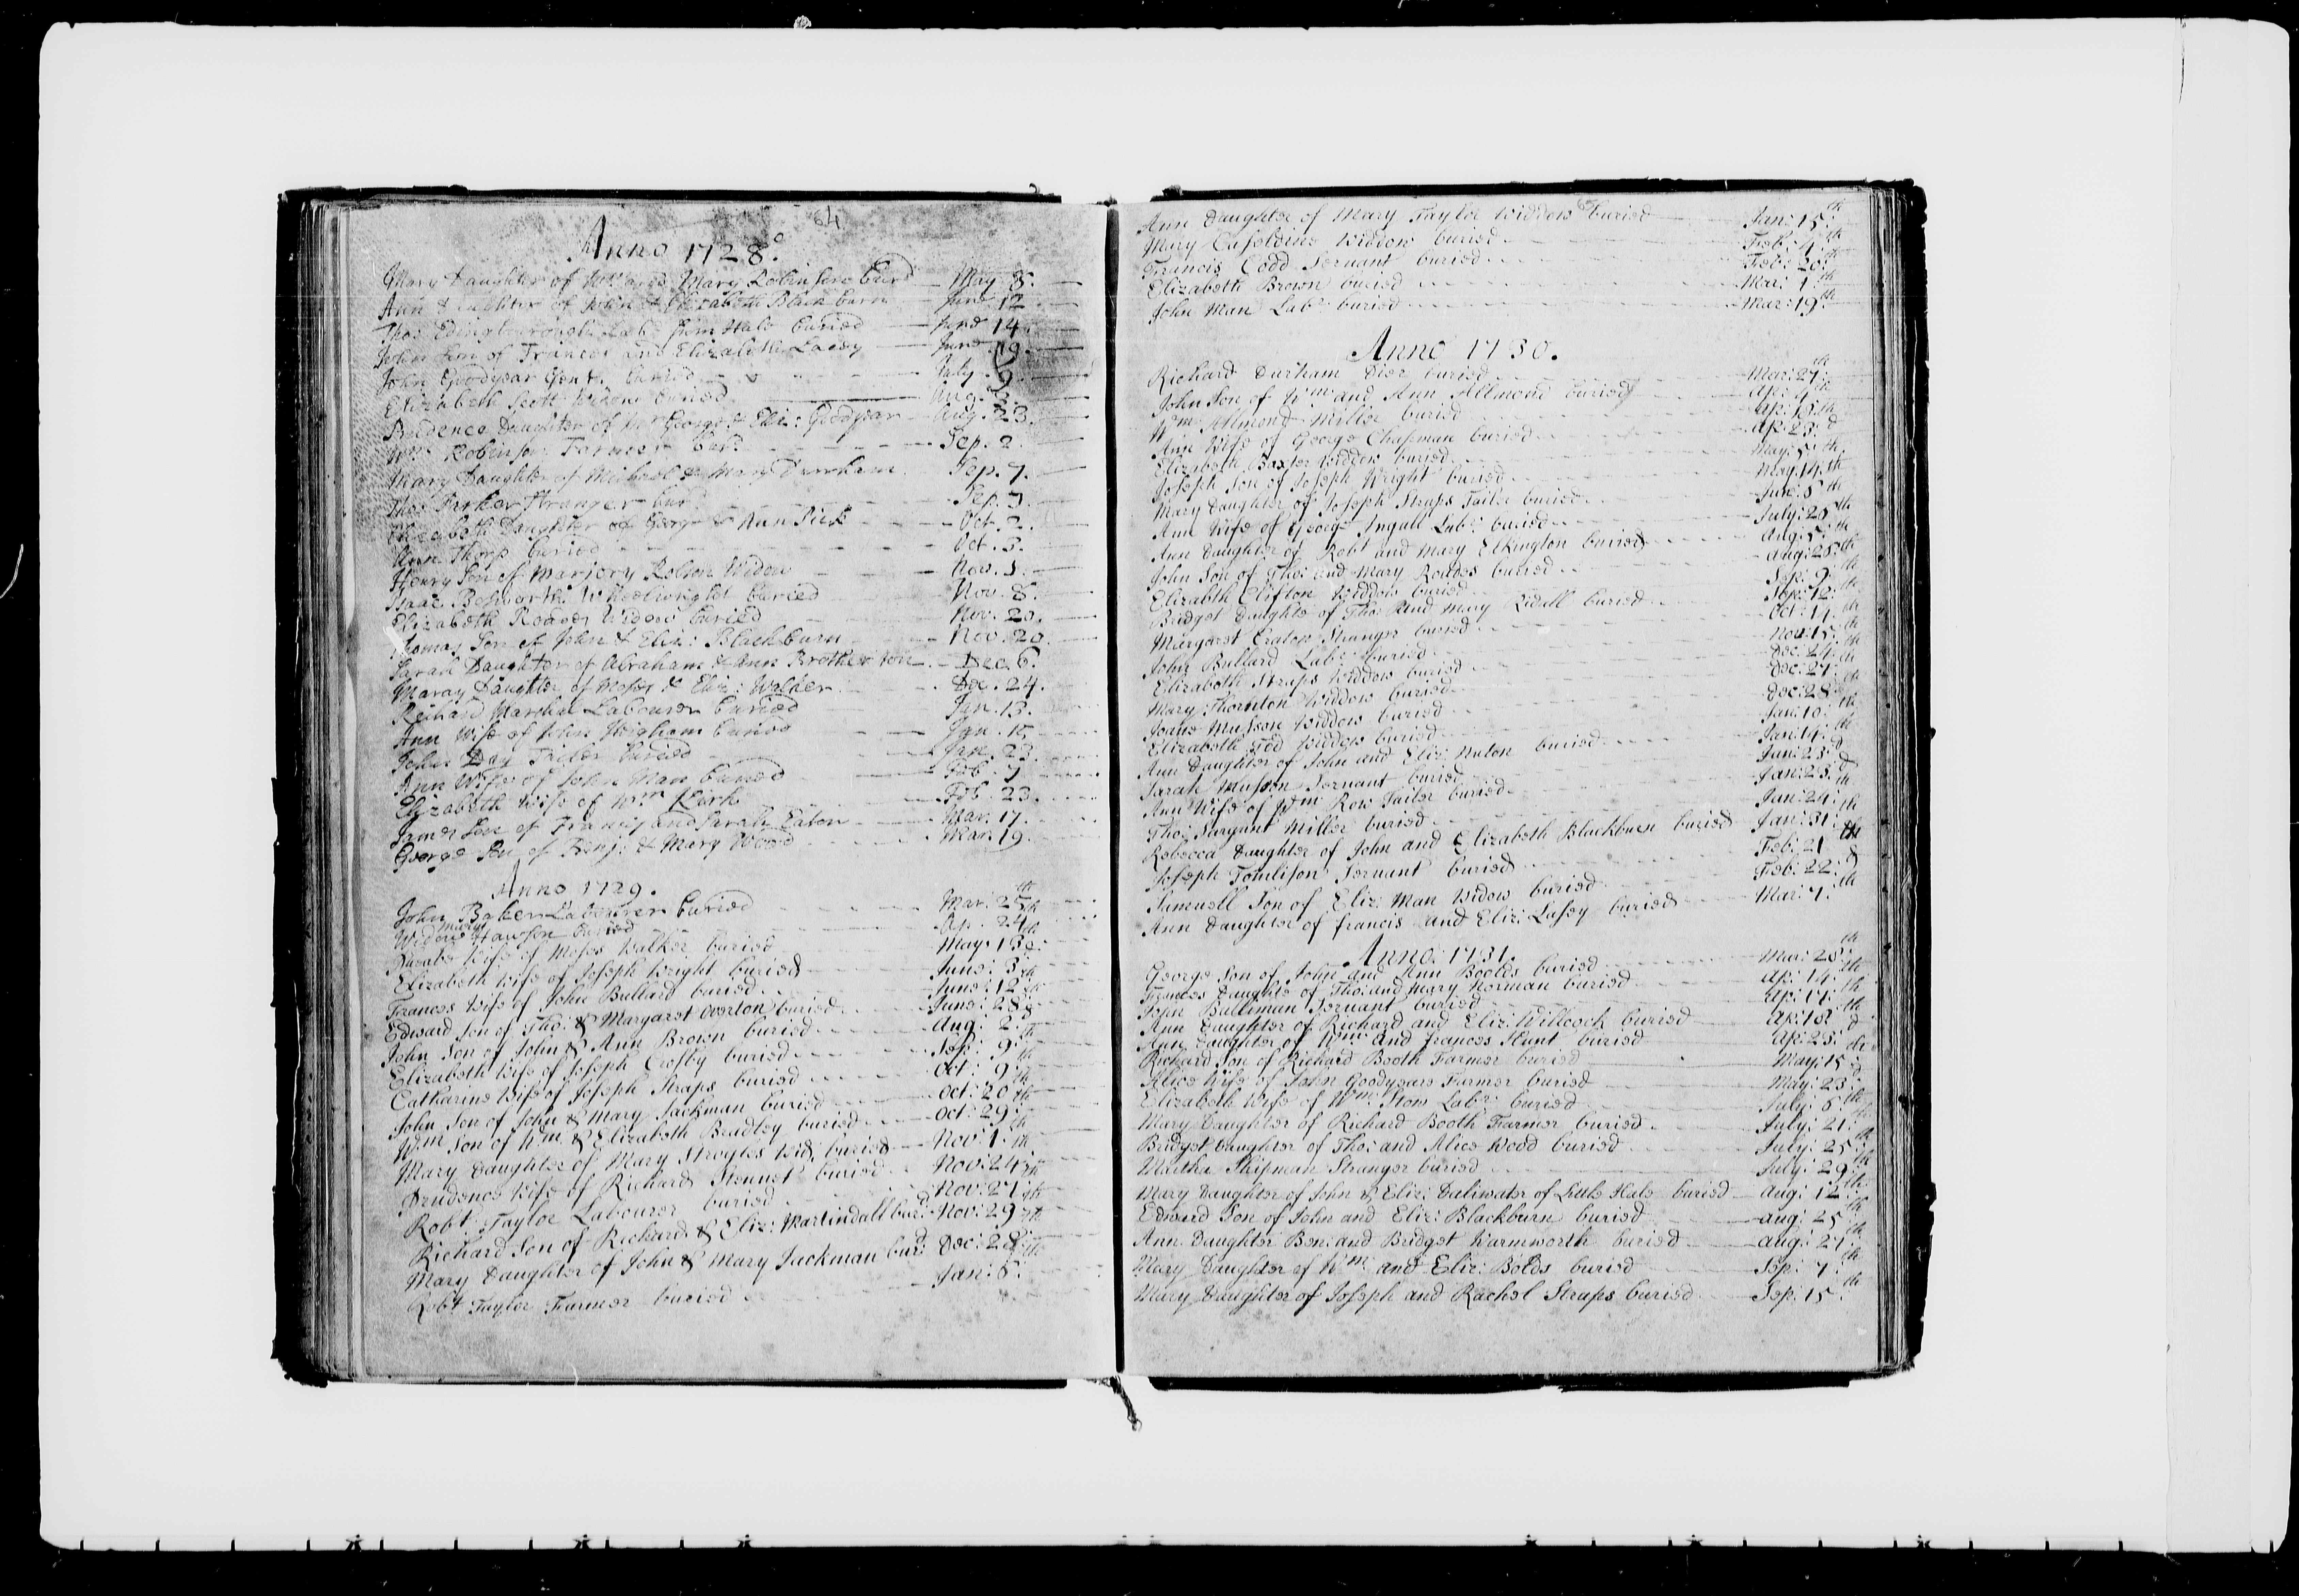 64
Anno 1728.
Mary Daughter of Wm and Mary Robinson burd May 8.
Ann Daughter of John & Elizabeth Blackburn June 12
Tho: Lab: from Hale buried June 14
John Son of Frances and Elizabeth Lacey June 19.
John Goodyear Gent. buried July 9
Elizabeth Scott Widow buried Aug.
Prudence Daughter of Mr George & Eliz: Goodyear Aug. 23.
Wm Robinson Farmer burd. Sep. 2.
Mary Daughter of Micheal & Mary Durrham Sep. 7.
Tho: Parker Stranger bur Sep. 7.
Elizabeth Daughter of George & Ann Oct. 2.
Ann Thorp buried Oct. 3.
Henry Son of Marjory Robson Widow Nov. 1.
Isaac Whoolwright buried Nov. 8.
Elizabeth Widow buried Nov. 20.
Thomas Son of John & Eliz: Blackburn Nov. 20.
Sarah Daughter of Abraham & Ann Brotherton Dec. 6.
Maray Daughter of Moses & Eliz: Walker Dec. 24.
Reihard Marshal Labourer buried Jan. 13.
Ann Wife of John Heigham buried Jan. 15.
John Day Tailer buried Jan. 23.
Ann Wife of John Man buried Feb. 7
Elizabeth Wife of Wm Clark Feb. 23.
James Son of Francis and Sarah Eaton Mar. 17.
George Son of Benj: & Mary Wood Mar. 19.
Anno 1729.
John Baker Labourer buried Mar: 25th
Widow Mary Hawson buried Ap: 24th
Wife of Moses Walker buried May: 13th
Elizabeth Wife of Joseph Wright buried June: 3d
Frances Wife of John Bullard buried June: 12th
Edward Son of Tho: & Margaret Overton buried June: 28th
John Son of John & Ann Brown buried Aug: 2d
Elizabeth Wife of Joseph Crosby buried Sep: 9th
Catharine Wife of Joseph Straps buried Oct: 9th
John Son of John & Mary Jackman buried Oct: 20th
Wm Son of Wm & Elizabeth Bradley buried Oct: 29th
Mary Daughter of Mary Wid: buried Nov: 1.
Prudence Wife of Richard Stennet buried Nov: 24th
Robt: Taylor Labourer buried Nov: 27th
Richard Son of Richard & Eliz: Martindall burd: Nov: 29th
Mary Daughter of John & Mary Jackman burd: Dec: 28th
Robt Taylor Farmer buried Jan: 8th
65
Ann Daughter of Mary Taylor Widdow buried Jan: 15th
Mary Widdow buried Feb: 4th
Francis Codd Servant buried Feb: 20th
Elizabeth Brown buried Mar: 1th
John Man Labr: buried Mar: 19th
Anno 1730.
Richard Durham Dier buried Mar: 27th
John Son of Wm and Ann Allmond buried Ap: 4th
Wm Allmond Miller buried Ap: 15th
Ann Wife of George Chapman buried Ap: 23d
Elizabeth Baxter Widdow buried May: 5th
Joseph Son of Joseph Wright buried May: 14th
Mary Daughter of Joseph Straps Tailer buried June: 8th
Ann Wife of George Ingall Labr: buried July: 28th
Ann Daughter of Robt and Mary Elkington buried Aug: 5th
John Son of Tho: and Mary Roades buried Aug: 28th
Elizabeth Clifton Widdow buried Sep: 9th
Bridget Daughtr of Tho: and Mary Ridall buried Sep: 12th
Margaret Stranger buried Oct: 17th
John Bullard Labr: buried Nov: 15th
Elizabeth Straps Widdow buried Dec: 24th
Mary Thornton Widdow buried Dec: 27th
Joane Musson Widdow buried Dec: 28th
Elizabeth Tod Widdow buried Jan: 10th
Ann Daughter of John and Eliz: Nuton buried Jan: 14th
Sarah Musson Servant buried Jan: 23d
Ann Wife of Wm Row Tailor buried Jan: 23d
Tho: Sargant Miller buried Jan: 24th
Rebecca Daughter of John and Elizabeth Blackburn buried Jan: 31th
Joseph Tomlison Servant buried Feb: 21th
Samuell Son of Eliz: Man Widow buried Feb: 22d
Ann Daughter of francis and Eliz: Lasey buried Mar: 7th
Anno: 1731.
George Son of John and Ann Boolds buried Mar: 28th
Frances Daughtr of Tho: and Mary Norman buried Ap: 14th
John Bulliman Servant buried Ap: 17th
Ann Daughter of Richard and Eliz: Willcock buried Ap: 18th
Ann Daughter of Wm and frances Hunt buried Ap: 23d
Richard Son of Richard Booth Farmer buried May: 15th
Alice Wife of John Goodyeare Farmer buried May: 23d
Elizabeth Wife of Wm Stow Labr: buried July: 6th
Mary Daughter of Richard Booth Farmer buried July: 21th
Bridget Daughter of Tho: and Alice Wood buried July: 25th
Martha Shipman Stranger buried July: 29th
Mary Daughter of John & Eliz: Daliwater of Little Hale buried Aug: 12th
Edward Son of John and Eliz: Blackburn buried Aug: 25th
Ann Daughter Ben: and Bridget Warmworth buried Aug: 27th
Mary Daughter of Wm and Eliz: Bolds buried Sep: 7th
Mary Daughter of Joseph and Rachel Straps buried Sep: 15th